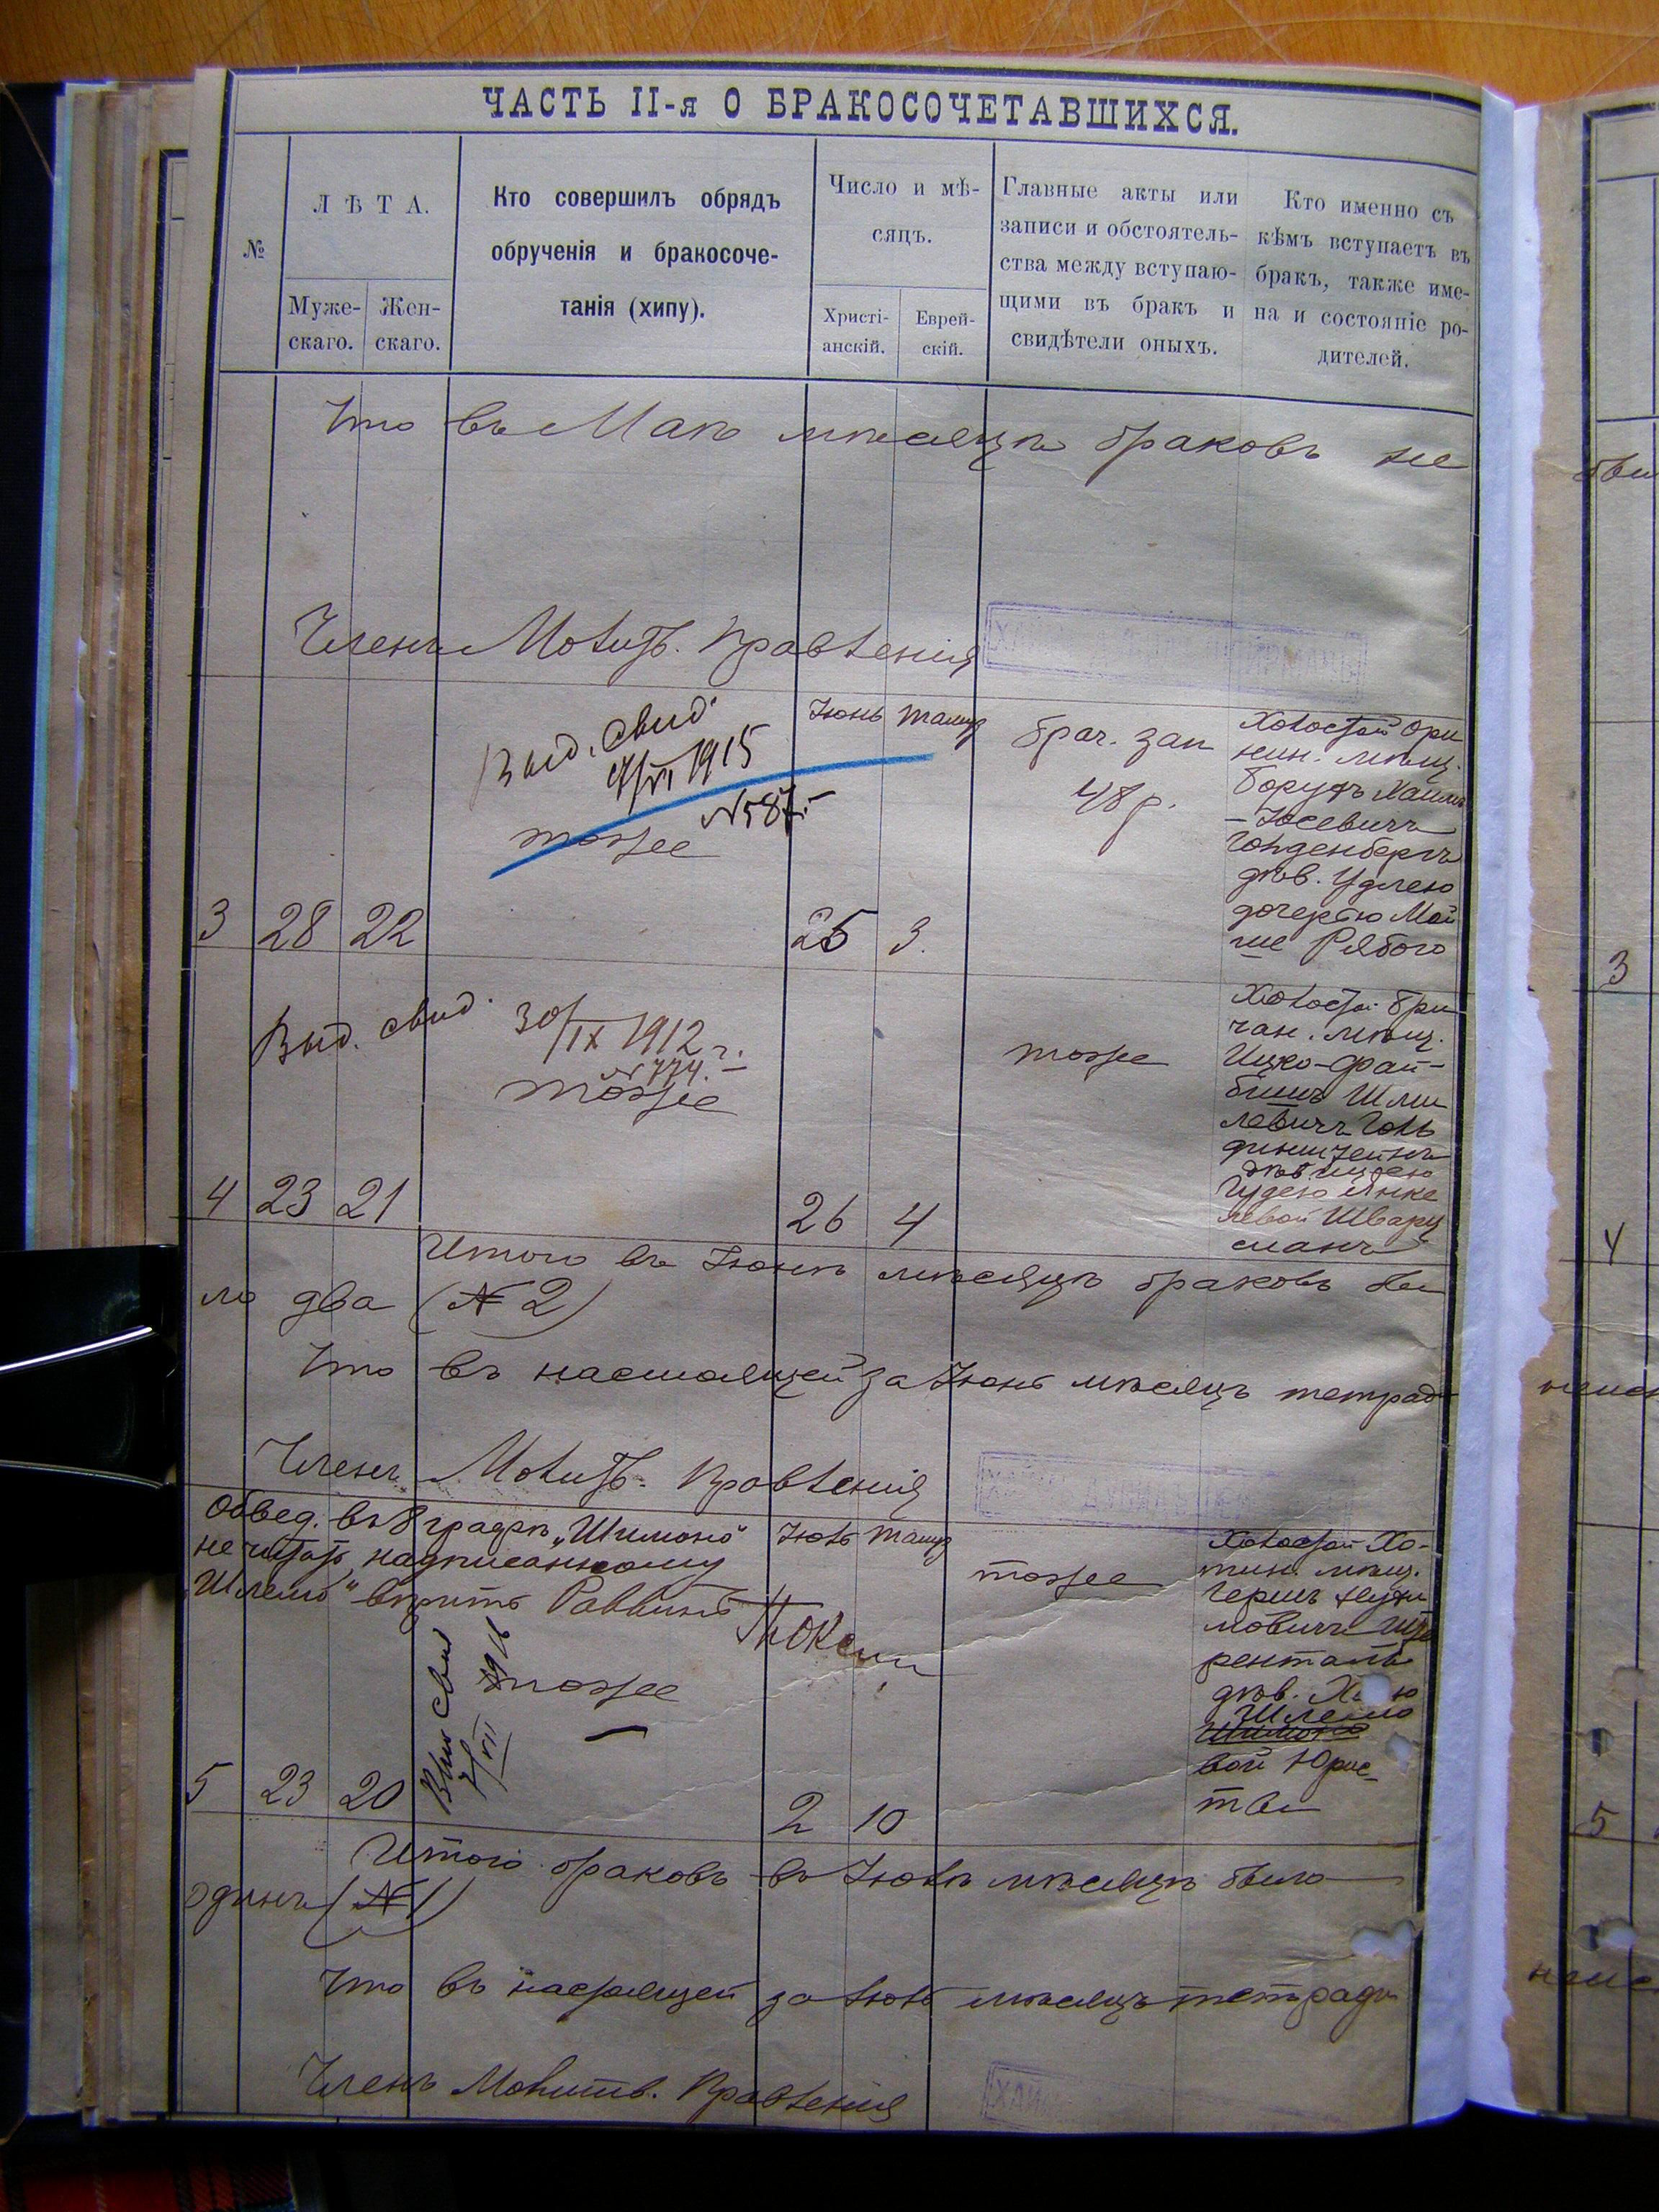 ЧАСТЬ II-я О БРАКОСОЧЕТАВШИХСЯ.
№
ЛѢТА.
Муже-
скаго.
Жен-
скаго.
Кто совершилъ обрядъ
обрученія и бракосоче-
танія (хипу).
Число и мѣ-
сяцъ.
Христі-
анскій.
Еврей-
скій.
Главные акты или
записи и обстоятель-
ства между вступаю-
щими въ бракъ и
свидѣтели оныхъ.
Кто именно съ
кѣмъ вступаетъ въ
бракъ, также име-
на и состояніе ро-
дителей.
Что въ Маѣ мѣсяцѣ браковъ не
Членъ Молитв. Правленія
Выд. свид.
1915
№587.
тоже
Іюнь
Тамуз
брач. зап
48 р.
Холостой Ори
нин. мѣщ.
Борухъ Хаимъ
-Іосевичъ
Гольденбергъ
дѣв. Удлею
дочерью Мой
ше Рябого
3 28 22
25 3.
Выд. свид. 30/IX 1912 г.
№ 774.
тоже
тоже
Холостой Бри
чан. мѣщ.
Ицко-Фай-
бишъ Шми
левичъГоль
динштейнъ
дѣвицею
Гудею Янке
левой Шварц
манъ
4 23 21
26 4
Итого въ Іюнѣ мѣсяцѣ браковъ бы
ло два (№ 2)
Что въ настоящей за Іюнь мѣсяцъ тетрад
Членъ Молитв. Правленія
Обвед. въ 8 графѣ „Шимоно"
не читать, надписанному
„Шлемо" вѣрить Раввинъ
Іюль
Тамуз
тоже
тоже
Выд свид
7/VII 1916
Холостой Хо-
тин. мѣщ.
Гершъ Нухи
мовичъ
ренталь
дѣв.
Шлемо
Шимоно
вой Юрис-
5 23 20
2 10
Итого браковъ въ Іюлѣ мѣсяцѣ было
одинъ (№ 1)
Что въ настоящей за Іюль мѣсяцъ тетради
Членъ Молитв. Правленія
3
4
5